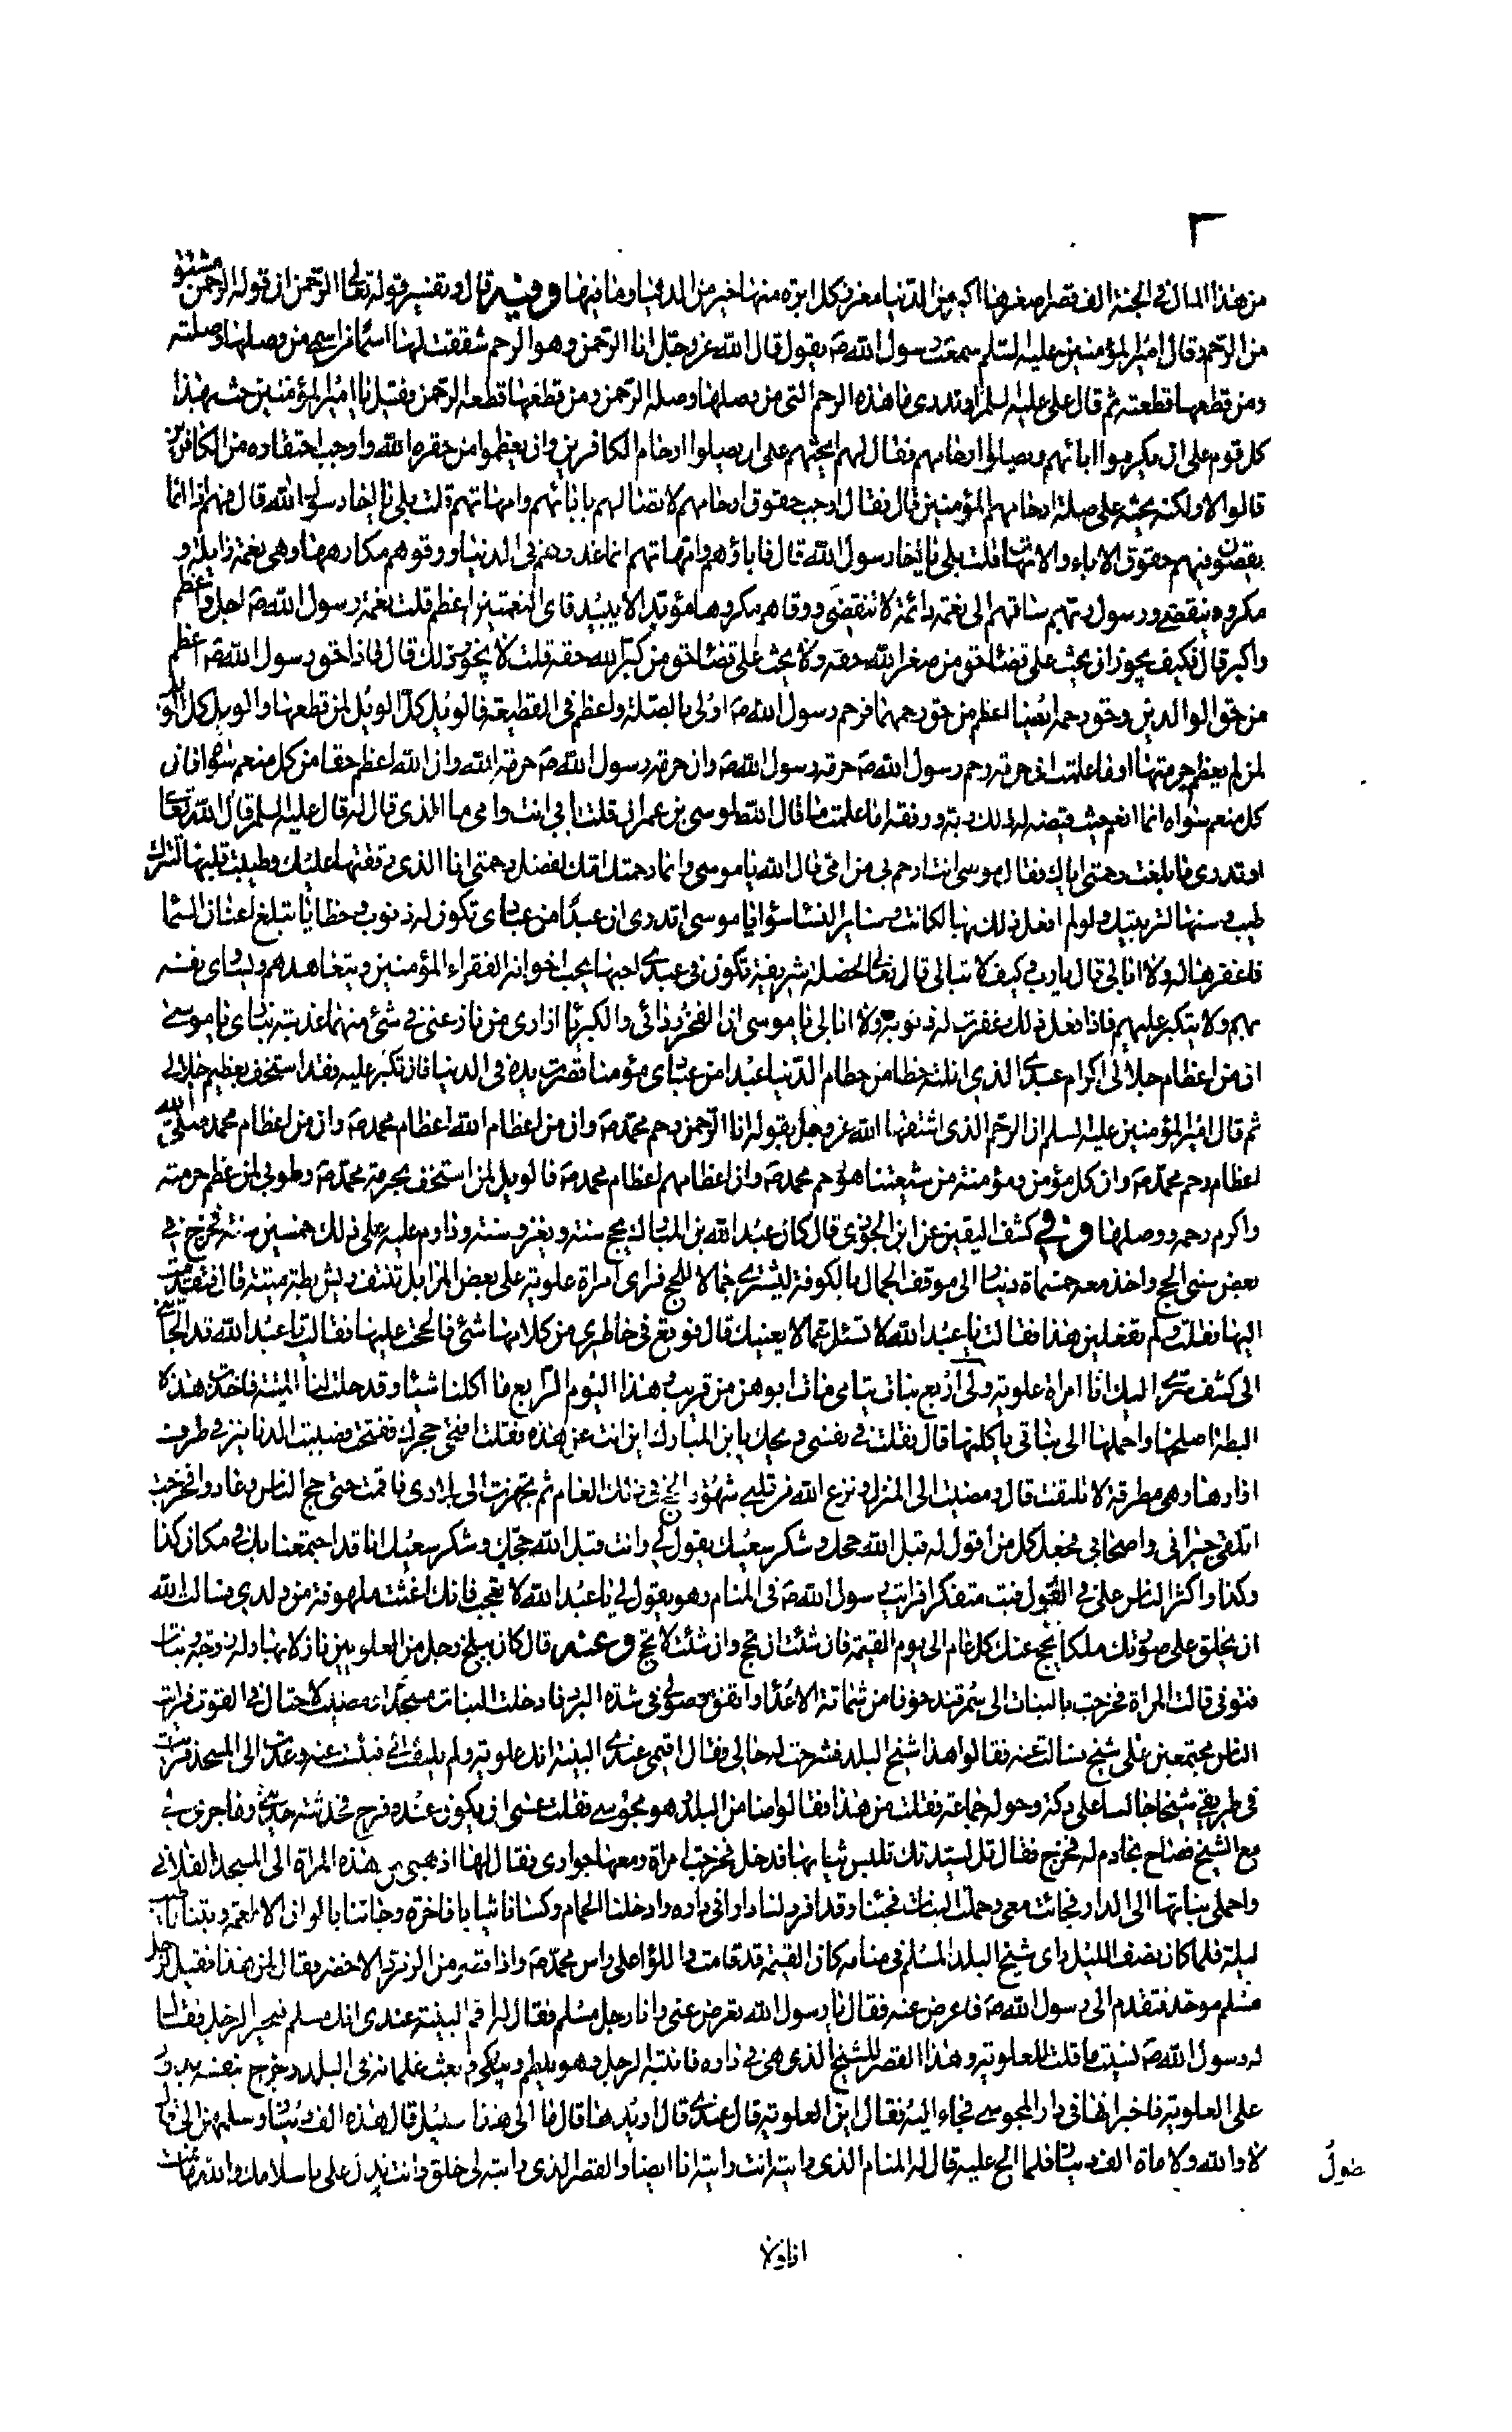 ٣
من هذا المال في الجنة الف قصر اصغرها اكبر من الدنيا مغرز كل ابرة منها خير من الدنيا وما فيها وفيه قال في تفسير قوله تعالى الرحمن ان قوله الرحمن مشتق
من الرحم وقال امير المؤمنين عليه السلام سمعت رسول الله ص يقول قال الله عز وجل انا الرحمن وهو الرحم شققت لها اسما من اسمي من وصلها وصلته
ومن قطعها قطعته ثم قال علي عليه السلم اوتدري ما هذه الرحم التي من وصلها وصله الرحمن ومن قطعها قطعه الرحمن فقيل يا امير المؤمنين حث بهذا
كل قوم على ان يكرموا ابائهم ويصلوا ارحامهم فقال لهم ايحثهم على ان يصلوا ارحام الكافرين وان يعظموا من حقره الله واوجب احتقاره من الكافرين
قالوا لا ولكنه يحثهم على صلة ارحامهم المؤمنين قال فقال اوجب حقوق ارحامهم لاتصالهم بابائهم وامهاتهم قلت بلى يا اخا رسول الله قال فهم اذا انما
يقضون فيهم حقوق الاباء والامهات قلت بلى يا اخا رسول الله قال فاباؤهم وامهاتهم انما غذوهم في الدنيا ووقوهم مكارهها وهي نعمة زايلة و
مكروه ينقضي ورسول ربهم ساقهم الى نعمة دائمة لا تنقضي ووقاهم مكروها مؤبدا لا يبيد فاي النعمتين اعظم قلت نعمة رسول الله ص اجل واعظم
واكبر قال فكيف يجوز ان يحث على قضاء حق من صغر الله حقه ولا يحث على قضاء حق من كبر الله حقه قلت لا يجوز ذلك قال فاذا حق رسول الله ص اعظم
من حق الوالدين وحق رحمه ايضا اعظم من حق رحمهما فرحم رسول الله ص اولى بالصلة واعظم في القطيعة فالويل كل الويل لمن قطعها والويل كل الويل
لمن لم يعظم حرمتها اوما علمت ان حرمة رحم رسول الله ص حرمة رسول الله ص وان حرمة رسول الله ص حرمة الله وان الله اعظم حقا من كل منعم سواه فان
كل منعم سواه انما انعم حيث قيضه له ذلك ربه ووفقه اما علمت ما قال الله لموسى بن عمران قلت بابي انت وامي ما الذي قال له قال عليه السلم قال الله تعالى
اوتدري ما بلغت رحمتي اياك فقال موسى انت ارحم بي من امي قال الله يا موسى وانما رحمتك امك لفضل رحمتي انا الذي رققتها عليك وطيبت قلبها لتترك
طيب وسنها لتربيتك ولو لم افعل ذلك بها لكانت وسائر النساء سواء يا موسى اتدري ان عبدا من عبادي تكون له ذنوب وخطايا تبلغ اعنان السماء
فاغفرها له ولا ابالي قال يا رب وكيف لا تبالي قال تعالى لخصلة شريفة تكون في عبدي احبها يحب اخوانه الفقراء المؤمنين ويتعاهدهم ويساوي نفسه
بهم ولا يتكبر عليهم فاذا فعل ذلك غفرت له ذنوبه ولا ابالي يا موسى ان الفخر ردائي والكبرياء ازاري من نازعني في شئ منهما عذبته بناري يا موسى
ان من اعظام جلالي اكرام عبدي الذي انلته حظا من حطام الدنيا عبدا من عبادي مؤمنا قصرت يده في الدنيا فان تكبر عليه فقد استخف بعظيم جلالي
ثم قال امير المؤمنين عليه السلم ان الرحم الذي اشتقها الله عز وجل بقوله انا الرحمن رحم محمد ص وان من اعظام الله اعظام محمد ص وان من اعظام محمد صلى الله
اعظام رحم محمد ص وان كل مؤمن ومؤمنة من شيعتنا هو رحم محمد ص وان اعظامهم اعظام محمد ص فالويل لمن استخف بحرمة محمد ص وطوبى لمن عظم حرمته
واكرم رحمه ووصلها وفي كشف اليقين عن ابن الجوزي قال كان عبد الله بن المبارك يحج سنة ويغزو سنة وداوم عليه على ذلك خمسين سنة فخرج في
بعض سني الحج واخذ معه خمسمأة دينار الى موقف الجمال بالكوفة ليشتري جمالا للحج فراى امراة علوية على بعض المزابل تنتف ريش بطة ميتة قال فتقدمت
اليها فقلت ولم تفعلين هذا فقالت يا عبد الله لا تسئل عما لا يعنيك قال فوقع في خاطري من كلامها شئ فالححت عليها فقالت يا عبد الله قد الجأتني
الى كشف سري اليك انا امراة علوية ولي اربع بنات يتامى مات ابوهن من قريب وهذا اليوم الرابع ما اكلنا شيئا وقد حلت لنا الميتة فاخذت هذه
البطة اصلحها واحملها الى بناتي ياكلنها قال فقلت في نفسي ويحك يا بن المبارك اين انت عن هذه فقلت افتحي حجرك ففتحت فصببت الدنانير في طرف
ازارها وهي مطرقة لا تلتفت قال ومضيت الى المنزل ونزع الله من قلبي شهوة الحج في ذلك العام ثم تجهزت الى بلادي فاقمت حتى حج الناس وعادوا فخرجت
اتلقى جيراني واصحابي فجعل كل من اقول له قبل الله حجك وشكر سعيك يقول لي وانت قبل الله حجك وشكر سعيك انا قد اجتمعنا بك في مكان كذا
وكذا واكثر الناس علي في القول فبت متفكرا فرايت رسول الله ص في المنام وهو يقول لي يا عبد الله لا تعجب فانك اغثت ملهوفة من ولدي فسالت الله
ان يخلق على صورتك ملكا يحج عنك كل عام الى يوم القيمة فان شئت ان تحج وان شئت لا تحج وعنه قال كان ببلخ رجل من العلويين نازلا بها وله زوجة وبنات
فتوفي قالت المراة فخرجت بالبنات الى سمرقند خوفا من شماتة الاعداء واتفق وصولي في شدة البرد فادخلت البنات مسجدا ومضيت لاحتال في القوت فرايت
الناس مجتمعين على شيخ فسالت عنه فقالوا هذا شيخ البلد فشرحت له حالي فقال اقيمي عندي البينة انك علوية ولم يلتفت الي فيئست عنه وعدت الى المسجد فرايت
في طريقي شيخا جالسا على دكة وحوله جماعة فقلت من هذا فقالوا ضامن البلد وهو مجوسي فقلت عسى ان يكون عنده فرج فحدثته حديثي وما جرى لي
مع الشيخ فصاح بخادم له فخرج فقال قل لسيدتك تلبس ثيابها فدخل فخرجت امراة ومعها جواري فقال لها اذهبي مع هذه المراة الى المسجد الفلاني
واحملي بناتها الى الدار فجائت معي وحملت البنات فجئنا وقد افرد لنا دارا في داره وادخلنا الحمام وكسانا ثيابا فاخرة وجائنا بالوان الاطعمة وبتنا باطيب
ليلة فلما كان نصف الليل راى شيخ البلد المسلم في منامه كان القيمة قد قامت واللواء على راس محمد ص واذا قصر من الزمرد الاخضر فقال لمن هذا فقيل لرجل
مسلم موحد فتقدم الى رسول الله ص فاعرض عنه فقال يا رسول الله تعرض عني وانا رجل مسلم فقال له اقم البينة عندي انك مسلم فتحير الرجل فقال
له رسول الله ص نسيت ما قلت للعلوية وهذا القصر للشيخ الذي هي في داره فانتبه الرجل وهو يلطم ويبكي وبعث غلمانه في البلد وخرج بنفسه يدور
على العلوية فاخبر انها في دار المجوسي فجاء اليه فقال اين العلوية قال عندي قال اريدها قال ما الى هذا سبيل قال هذه الف دينار وسلمهن الي قال
لا والله ولا مأة الف دينار فلما الح عليه قال له المنام الذي رايته انت رايته انا ايضا والقصر الذي رايته لي خلق وانت تدل علي باسلامك والله ما نمت
طول
انا ولا